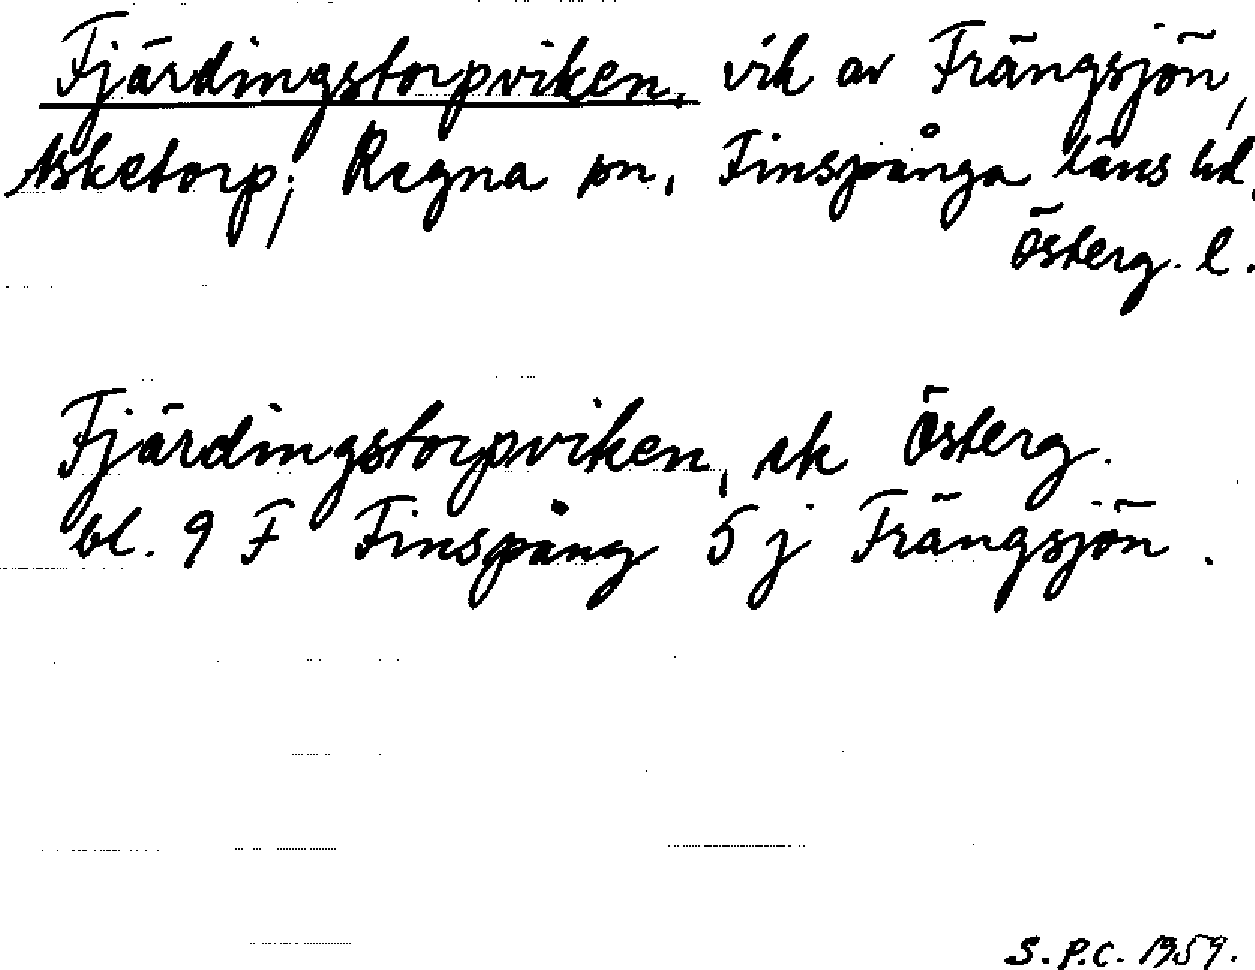 Fjärdingstorpviken, vik av Frängsjön,
Asketorp; Regna sn, Finspånga läns hd,
Österg. l.
Fjärdingstorpviken, ek Österg.
bl. 9 F Finspång 5 j Frängsjön.
S.P.C. 1959.